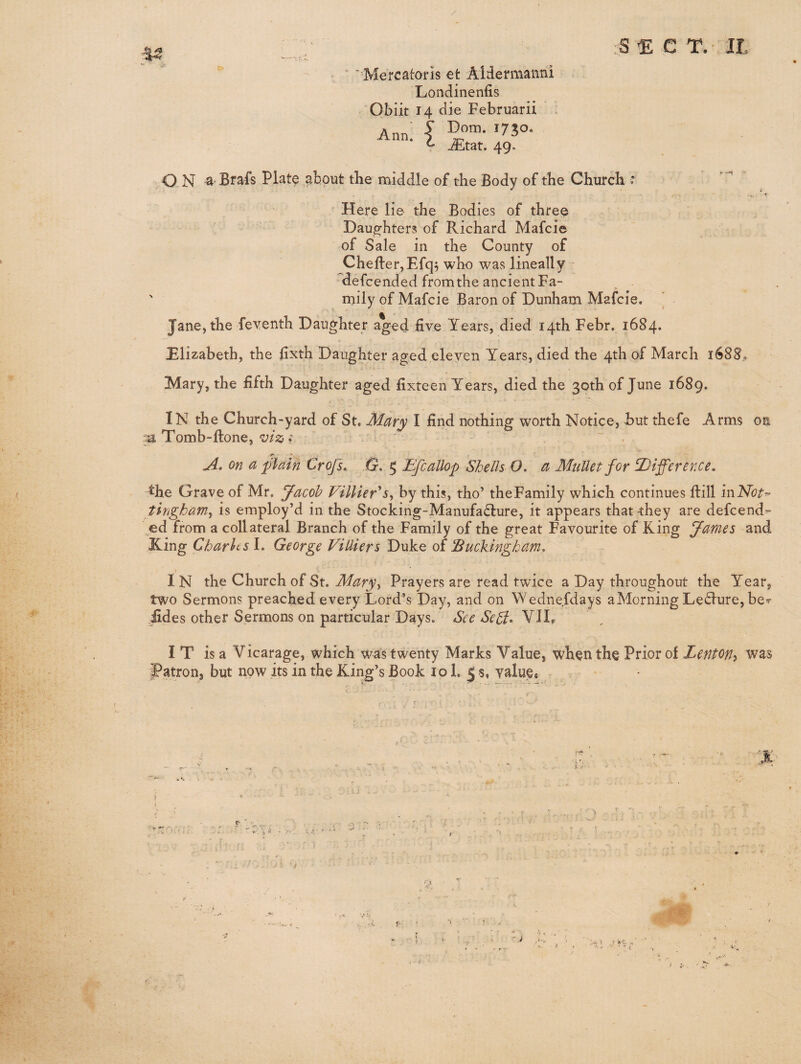 42
SECT. II.
Mercatoris et Aldermanni
Londinenſis
Obiit 14 die Februarii
Ann. { Dom. 1730.
Ætat. 49.
ON a Braſs Plate about the middle of the Body of the Church:
Here lie the Bodies of three
Daughters of Richard Maſcie
of Sale in the County of
Cheſter, Eſq; who was lineally
deſcended from the ancient Fa-
mily of Maſcie Baron of Dunham Maſcie.
Jane, the ſeventh Daughter aged five Years, died 14th Febr. 1684.
Elizabeth, the ſixth Daughter aged eleven Years, died the 4th of March 1688.
Mary, the fifth Daughter aged ſixteen Years, died the 30th of June 1689.
IN the Church-yard of St. Mary I find nothing worth Notice, but theſe Arms on
a Tomb-ſtone, viz:
A. on a plain Croſs. G. 5 Eſcallop Shells O. a Mullet for Difference.
the Grave of Mr. Jacob Villier's, by this, tho' the Family which continues ſtill in Not-
tingham, is employ'd in the Stocking-Manufacture, it appears that they are deſcend-
ed from a collateral Branch of the Family of the great Favourite of King James and
King Charles I. George Villiers Duke of Buckingham.
IN the Church of St. Mary, Prayers are read twice a Day throughout the Year,
two Sermons preached every Lord's Day, and on Wedneſdays a Morning Lecture, be-
ſides other Sermons on particular Days. See Sect. VII.
IT is a Vicarage, which was twenty Marks Value, when the Prior of Lenton, was
Patron, but now its in the King's Book 10 l. 5 s. value.